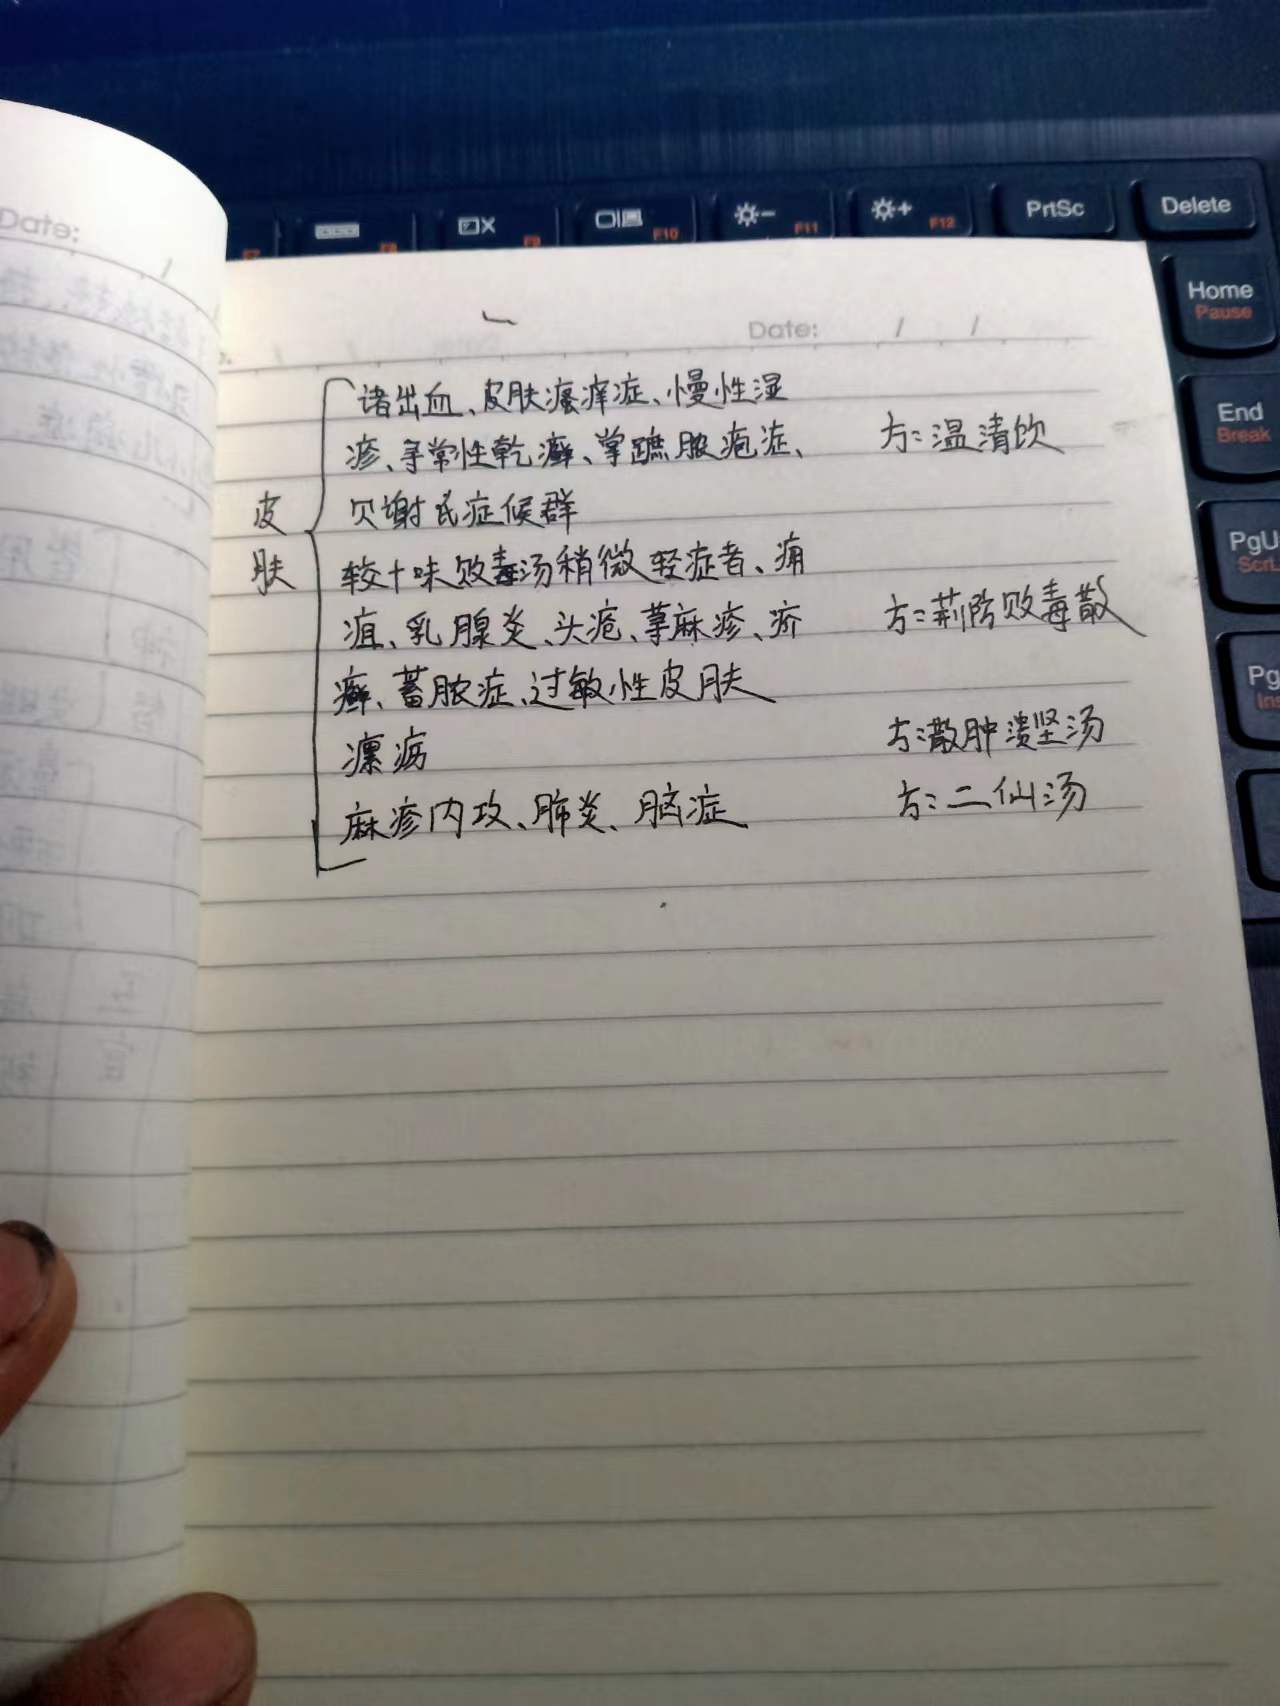 PrtSc
Delete
F7
F8
F9
F10
F11
F12
Home
Pause
End
Break
PgU
ScrL
Pg
Ins
Date:
Date: / /
诸出血、皮肤瘙痒症、慢性湿
疹、寻常性乾癣、掌蹠脓疱症、 方:温清饮
贝谢氏症候群
皮肤
较十味败毒汤稍微轻症者、痈
疽、乳腺炎、头疮、荨麻疹、疥 方:荆防败毒散
癣、蓄脓症、过敏性皮肤
瘰疬 方:散肿溃坚汤
麻疹内攻、肺炎、脑症 方:二仙汤